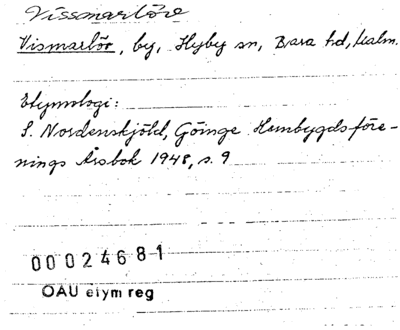 Vissmarlöre
Vismarlöv, by, Hyby sn, Bara hd, Malm.
Etymologi:
S. Nordenskjöld, Göinge Hembygdsföre-
nings Årsbok 1948, s. 9
00024681
OAU etym reg